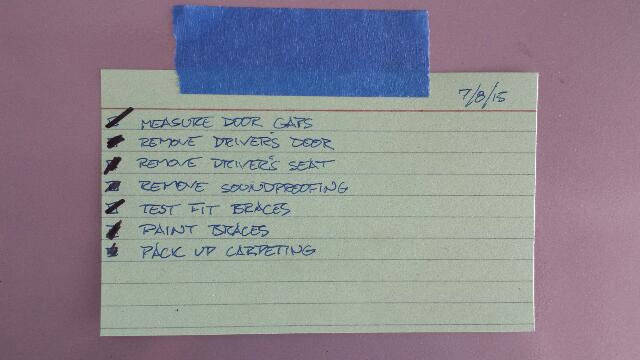 7/8/15
MEASURE DOOR GAPS
REMOVE DRIVER'S DOOR
REMOVE DRIVER'S SEAT
REMOVE SOUNDPROOFING
TEST FIT BRACES
PAINT BRACES
PACK UP CARPETING